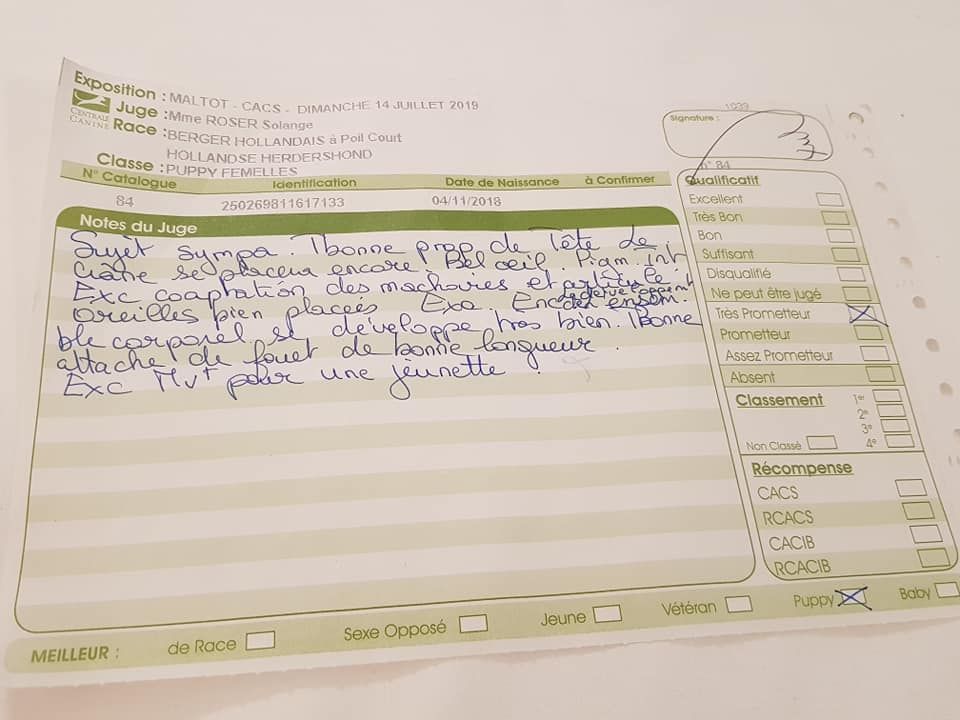 Exposition : MALTOT - CACS - DIMANCHE 14 JUILLET 2019
CENTRALE CANINE
Juge : Mme ROSER Solange
Race : BERGER HOLLANDAIS à Poil Court
HOLLANDSE HERDERSHOND
Classe : PUPPY FEMELLES
N° Catalogue Identification Date de Naissance à Confirmer
84 250269811617133 04/11/2018
Notes du Juge
Sujet sympa. Bonne prop de Tête Le
crâne se placera encore. Bel oeil. Pigm. int
Exc coaptation des machoires et articulé
Oreilles bien placées Exc. Encolure
den ensom.
ble corporel se développe très bien. Bonne
attache de fouet de bonne longueur.
Exc Mvt pour une jeunette.
1039
Signature :
n° 84
Qualificatif
Excellent
Très Bon
Bon
Suffisant
Disqualifié
Ne peut être jugé
Très Prometteur X
Prometteur
Assez Prometteur
Absent
Classement
1er
2e
3e
Non Classé 4e
Récompense
CACS
RCACS
CACIB
RCACIB
MEILLEUR : de Race Sexe Opposé Jeune Vétéran Puppy X Baby